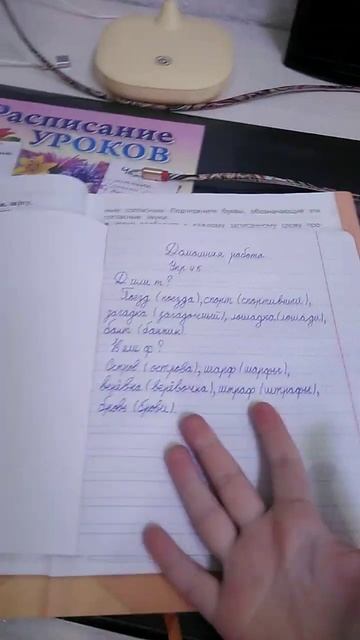 Расписание
УРОКОВ
ные согласные. Подчеркните буквы, обозначающие эти
согласные звуки.
к каждому записанному слову про-
Домашняя работа
Упр 45
Д или т?
Поезд (поезда), спорт (спортивный),
загадка (загадочный), лошадка (лошади),
бант (бантик)
В или ф?
Остров (острова), шарф (шарфы),
верёвка (верёвочка), штраф (штрафы),
бровь (брови).